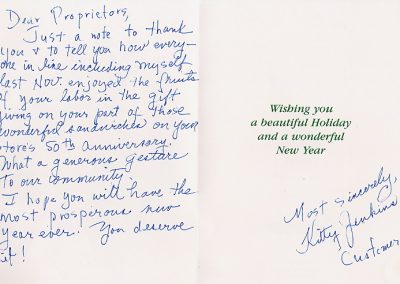 Dear Proprietors,
Just a note to thank
you & to tell you how every-
one in line including myself
last Nov. enjoyed the fruits
of your labor in the gift
giving on your part of those
wonderful sandwiches on your
store's 50th anniversary.
What a generous gesture
to our community.
I hope you will have the
most prosperous new
year ever. You deserve
it!
Wishing you
a beautiful Holiday
and a wonderful
New Year
Most sincerely,
Kitty Jenkins
Customer